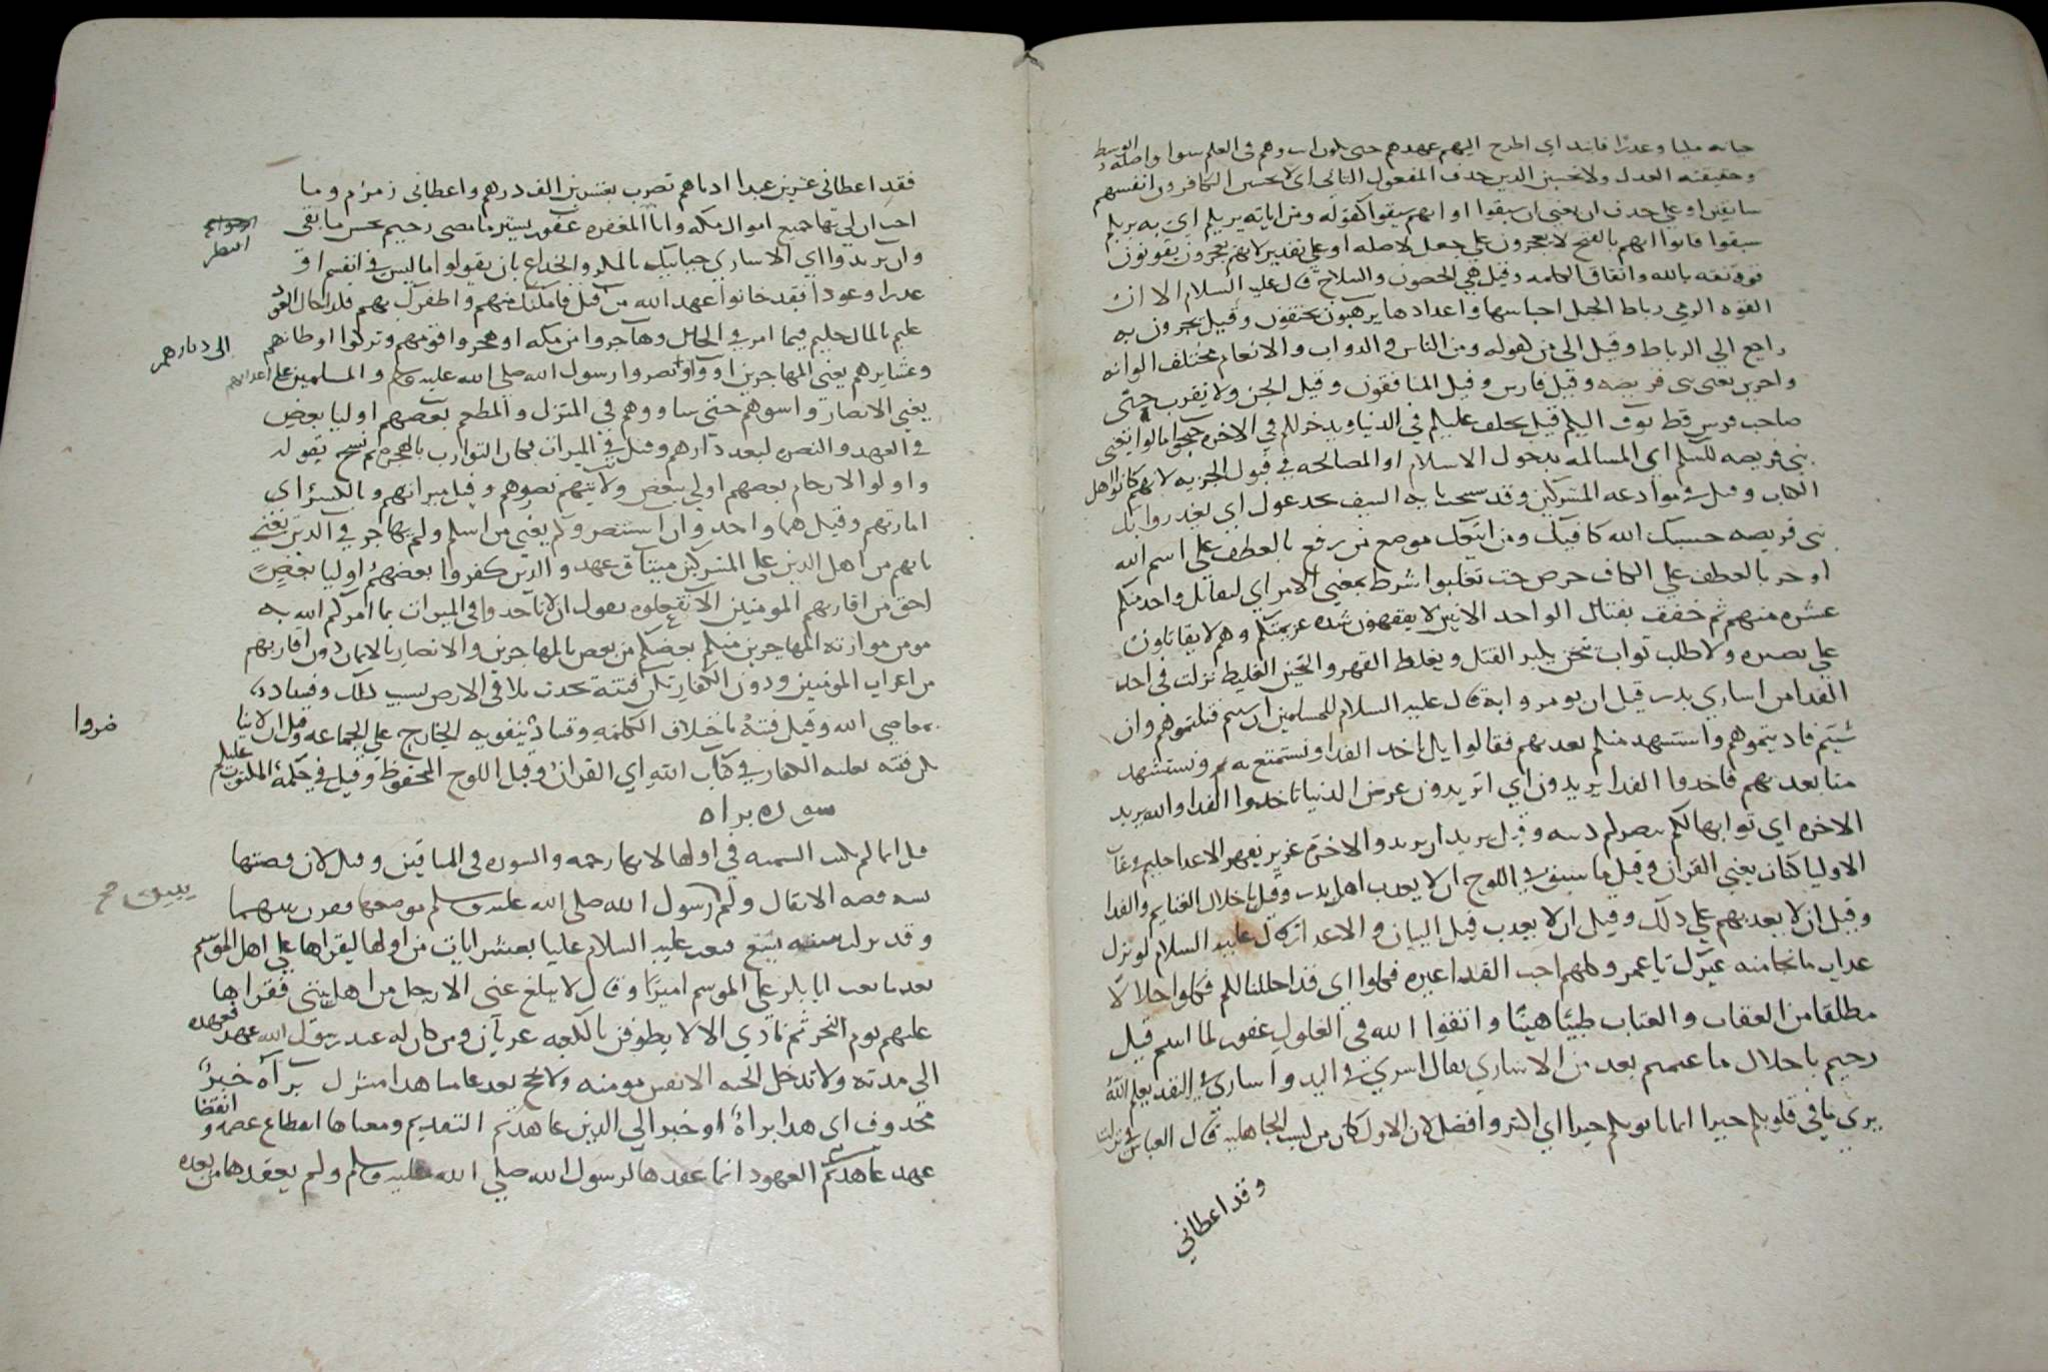 وعدرا فانبد اي اطرح اليهم عهدهم حتى وهم في العلم سوا واصله الوسط
وحقيقته العدل ولا تحسبن الدين حدف المفعول الثاني اي لا تحسبن الكافرون انفسهم
سابقين او على حدف ان يعني ان سبقوا او انهم سبقوا كقوله ومن اياته يريكم اي به يريكم
سبقوا فاتوا انهم بالفتح لا يعجزون على جعل لا صله او على تقدير لانهم يعجزون يفوتون
قوه ثقه بالله واتفاق الكلمه وقيل هي الحصون والسلاح قال عليه السلام الا ان
القوه الرمي رباط الخيل احباسها واعدادها يرهبون يخوفون وقيل يحزون به
راجع الي الرباط وقيل الى من لقوله ومن الناس والدواب والانعام مختلف الوانه
واخرين يعني بني قريضه وقيل فارس وقيل المنافقون وقيل الجن ولا يقرب جني
صاحب فرس قط يوف اليكم قيل يخلف عليكم في الدنيا ويدخر لكم في الاخره جنحوا مالوا يعني
بني قريضه للسلم اي المسالمه بدخول الاسلام او المصالحه في قبول الجزيه لانهم كانوا اهل
الكتاب وقيل في موادعه المشركين وقد نسخت بايه السيف يخدعوك اي يغدروا بك
بني قريضه حسبك الله كافيك ومن اتبعك موضع من رفع بالعطف على اسم الله
او جر بالعطف علي الكاف حرص حث تغلبوا شرط بمعني الامر اي ليقاتل واحد منكم
عشره منهم ثم خفف بقتال الواحد الاثنين لا يفقهون شده عزيمتكم وهم لا يقاتلون
على بصيره ولا طلب ثواب يثخن يكثر القتل ويغلظ القهر والثخين الغليظ نزلت في اخد
الفدا من اساري بدر قيل ان يومر وا به قال عليه السلام للمسلمين ان شيتم قتلتموهم وان
شيتم فاديتموهم واستشهد منكم بعدتهم فقالوا بل ناخد الفدا ونستمتع به ونستشهد
منا بعدتهم فاخدوا الفدا يريدون اي اتريدون عرض الدنيا تاخدوا الفدا والله يريد
الاخره اي ثوابها لكم بنصركم دينه وقيل يريد ان يريدوا الاخره عزيز يقهر الاعدا حليم
الاوليا كتاب يعني القران وقيل ما سبق في اللوح ان لا يعدب اهل بدر وقيل باحلال الغنايم والفدا
وقيل ان لا يعدبهم على دلك وقيل ان لا يعدب قبل البيان والاعدار قال عليه السلام لو نزل
عداب ما نجا منه غيرك يا عمر وكلهم احب الفدا غيره فكلوا اي قد احللنا لكم فكلوا حلالا
مطلقا من العقاب والعتاب طيبا هينا واتقوا الله في الغلول غفور لما اسم قبل
رحيم باحلال ما غنمتم بعد من الاساري يقال اسري في اليد واساري في القد يعلم الله
يري ما في قلوبكم خيرا ايمانا يوتكم خيرا اي اكثر وافضل لان الاول كان من كسب الجاهليه قال العباس في نزلت
وقد اعطاني
فقد اعطاني عشرين عبدا ادناهم يضرب بعشرين الف درهم واعطاني زمزم وما
احب ان لي بها جميع اموال مكه وانا المغفره غفور يستر ما مضى رحيم يحسن ما بقي
انتظر
وان يريدوا اي الاساري خيانتك بالمكر والخداع بان يقولوا ما ليس في انفسهم او
عدرا وعودا فقد خانوا عهد الله من قبل فامكنك منهم واظفرك بهم
عليم بالمال حكيم فيما امر في الحال وهاجروا من مكه او هجروا قومهم وتركوا اوطانهم
الى ديارهم
وعشايرهم يعني المهاجرين اووا ونصروا رسول الله صلي الله عليه وسلم والمسلمين على اعدايهم
يعني الانصار واسوهم حتى ساووهم في المنزل والمطعم بعضهم اوليا بعض
في العهد والنصره لبعد دارهم وقيل في الميراث فكان التوارث بالهجره ثم نسخ بقوله
واولوا الارحام بعضهم اولي ببعض ولايتهم نصرهم وقيل ميراثهم وبالكسر اي
امارتهم وقيل هما واحد وان استنصروكم يعني من اسلم ولم يهاجر في الدين يعني
بانهم من اهل الدين على المشركين ميثاق عهد والدين كفروا بعضهم اوليا بعض
احق من اقاربهم المومنين الا تفعلوه يقول ان لا تاخدوا في الميراث بما امركم الله به
مومن موازته المهاجرين منكم بعضكم من بعض بالمهاجرين والانصار بالايمان دون اقاربهم
من اعراب المومنين ودون الكفار تكن فتنة تحدث بلا في الارض بسبب دلك وفساد
ضروا
بمعاصي الله وقيل فتنة باختلاف الكلمه وفساد بتقويه الخارج على الجماعه وقيل ان لا
تكن فتنه بغلبه الكفار في كتاب الله اي القران وقيل اللوح المحفوظ وقيل في حكمه المكتوب عليكم
سوره براه
قيل انما لم يكتب التسميه في اولها لانها رحمه والسوره في المنافقين وقيل لان قصتها
تشبه قصه الانفال ولم رسول الله صلى الله عليه وسلم موضعها فقرن بينهما
يبين صح
وقد نزلت سنه تسع فبعث عليه السلام عليا بعشر ايات من اولها ليقراها على اهل الموسم
بعد ما بعث ابا بكر على الموسم اميرا وقال لا يبلغ عني الا رجل من اهل بيتي فقراها
عليهم يوم النحر ثم نادي الا لا يطوفن بالكعبه عريان ومن كان له عند رسول الله عهد فعهده
الي مدته ولا تدخل الجنه الا نفس مومنه ولا يحج بعد عامنا هدا مشرك براه خبر
محدوف اي هدا براه او خبر الي الدين عاهدتم التقديم ومعناها انقطاع عصمه وانقضا
عهد عاهدتم العهود انما عقدها رسول الله صلي الله عليه وسلم ولم يعقدها من بعده